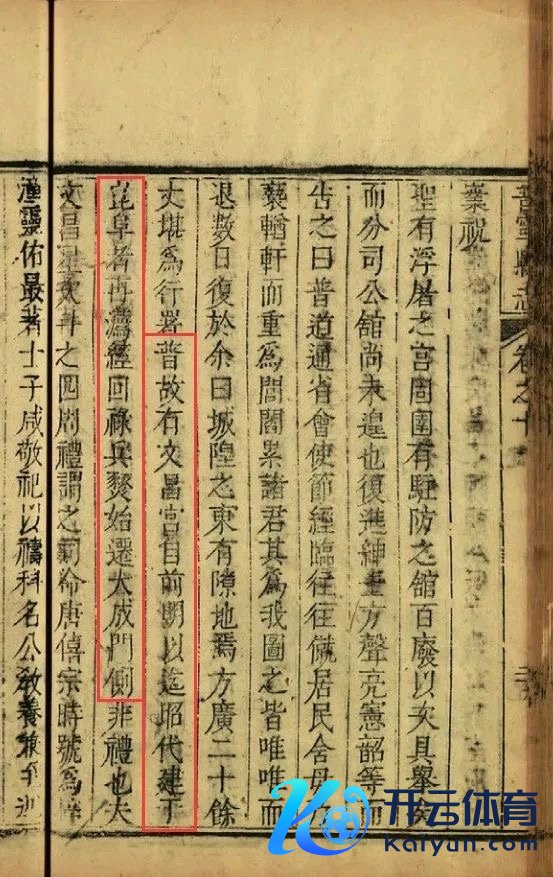 普寧縣志 卷之十
稟祝
聖有浮屠之宮固圉有駐防之舘百廢以次具舉矣
而分司公舘尚未遑也復進紳耆方聲亮憲韶等而
告之曰普道通省會使節經臨往往僦居民舍毋乃
褻輶軒而重為閭閻累諸君其為我圖之皆唯唯而
退數日復於余曰城隍之東有隙地焉方廣二十餘
丈堪為行署普故有文昌宮自前明以迄昭代建于
崑阜者再薦經回祿兵燹始遷大成門側非禮也夫
文昌星次斗之四周禮謂之司命唐僖宗時號為
靈佑最著士子咸敬祀以禱科名公敎養兼
开云体育
Kaiyun.com